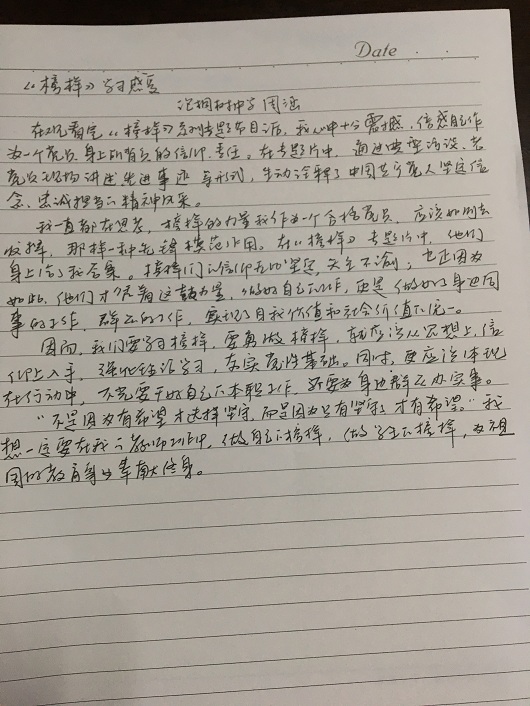 Date
《榜样》学习感受
泥桐树中学 周涵
在观看完《榜样》系列专题节目后,我心中十分震撼,倍感自己作
为一个党员身上所肩负的信仰、责任。在专题片中,通过典型访谈、老
党员现场讲述先进事迹等形式,生动诠释了中国共产党人坚定信
念、忠诚担当的精神风采。
我一直都在思考,榜样的力量我作为一个合格党员,应该如何去
发挥,那样一种先锋模范作用。在《榜样》专题片中,他们
身上给了我答案。榜样们的信仰无比坚定,矢志不渝;也正因为
如此,他们才凭着这股力量,做好自己的工作,还是做好了身边同
事的工作,群众的工作,实现了自我价值和社会价值的统一。
因而,我们要学习榜样,要真做榜样,就应该从思想上、信
仰上入手,强化理论学习,夯实党性基础。同时,更应该体现
在行动中,不光要干好自己的本职工作,还要为身边群众办实事。
“不是因为有希望才选择坚守,而是因为只有坚守了才有希望。”我
想一定要在我的教师工作中,做自己的榜样,做学生的榜样,为祖
国的教育事业奉献终身。